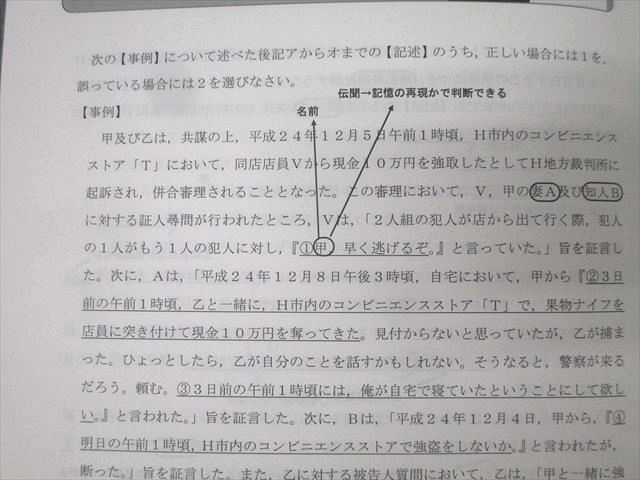 次の【事例】について述べた後記アからオまでの【記述】のうち，正しい場合には１を，
誤っている場合には２を選びなさい。
伝聞→記憶の再現かで判断できる
【事例】
名前
甲及び乙は，共謀の上，平成２４年１２月５日午前１時頃，Ｈ市内のコンビニエンス
ストア「Ｔ」において，同店店員Ｖから現金１０万円を強取したとしてＨ地方裁判所に
起訴され，併合審理されることとなった。この審理において，Ｖ，甲の妻Ａ及び知人Ｂ
に対する証人尋問が行われたところ，Ｖは，「２人組の犯人が店から出て行く際，犯人
の１人がもう１人の犯人に対し，『①甲　早く逃げるぞ。』と言っていた。」旨を証言し
た。次に，Ａは，「平成２４年１２月８日午後３時頃，自宅において，甲から『②３日
前の午前１時頃，乙と一緒に，Ｈ市内のコンビニエンスストア「Ｔ」で，果物ナイフを
店員に突き付けて現金１０万円を奪ってきた。見付からないと思っていたが，乙が捕ま
った。ひょっとしたら，乙が自分のことを話すかもしれない。そうなると，警察が来る
だろう。頼む。③３日前の午前１時頃には，俺が自宅で寝ていたということにして欲し
い。』と言われた。」旨を証言した。次に，Ｂは，「平成２４年１２月４日，甲から，『④
明日の午前１時頃，Ｈ市内のコンビニエンスストアで強盗をしないか。』と言われたが，
断った。」旨を証言した。また，乙に対する被告人質問において，乙は，「甲と一緒に強